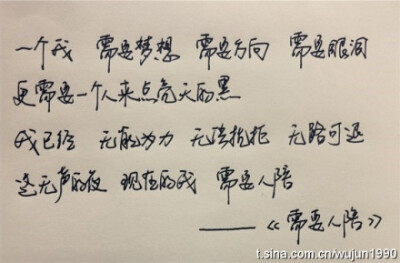 一个我 需要梦想 需要方向 需要眼泪
更需要一个人来点亮天的黑
我已经 无能为力 无法抗拒 无路可退
这无声的夜 现在的我 需要人陪
——《需要人陪》
t.sina.com.cn/wujun1990